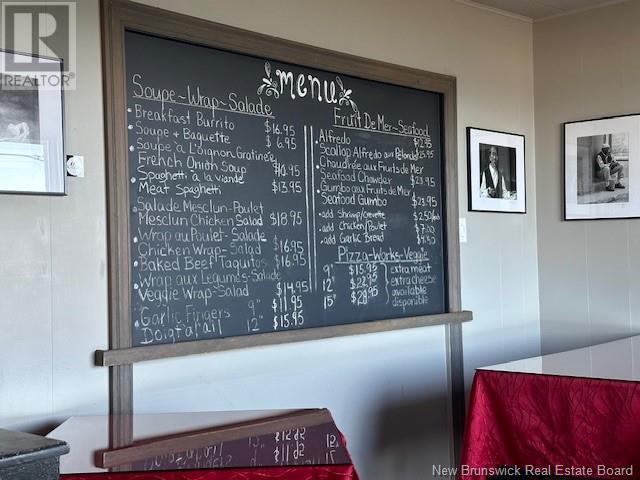 REALTOR®
menu
Soupe~Wrap~Salade
Breakfast Burrito $16.95
Soupe + Baguette $6.95
Soupe à L'oignon Gratinée
French Onion Soup $10.95
Spaghetti à la viande
Meat Spaghetti $13.95
Salade Mesclun-Poulet
Mesclun Chicken Salad $18.95
Wrap au Poulet-Salade
Chicken Wrap-Salad $16.95
Baked Beef Taquitos $16.95
Wrap aux Legumes-Salade
Veggie Wrap-Salad $14.95
Garlic Fingers 9" $11.95
Doigt à l'ail 12" $15.95
Fruit De Mer~Seafood
Alfredo
Scallop Alfredo aux Pétoncles
Chaudrée aux Fruits de Mer
Seafood Chowder $23.95
Gumbo aux Fruits de Mer
Seafood Gumbo $23.95
add Shrimp/Crevette $2.50
add Chicken/Poulet
add Garlic Bread
Pizza-Works-Veggie
9" $15.95 extra meat
12" $22.95 extra cheese
15" available
disponible
New Brunswick Real Estate Board